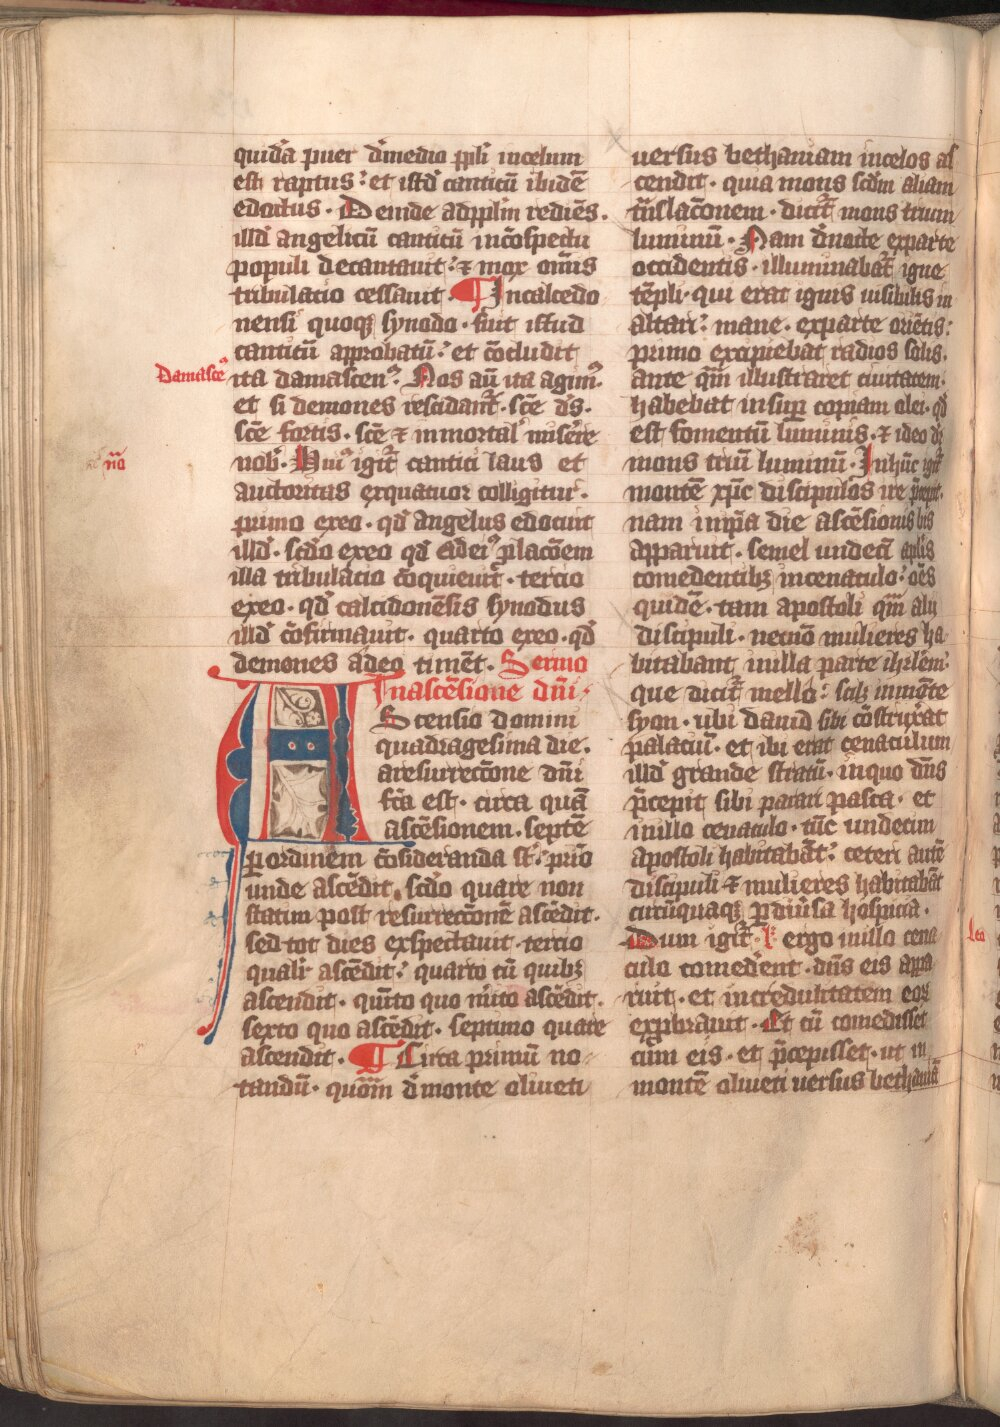 quidā puer d̄medio ppl̄i incelum
est raptus : et istd̄ canticū ibidē
edoctus . Deinde adppl̄m rediēs .
illd̄ angelicū canticū incōspectu
populi decantauit : ⁊ mox om̄is
tribulatio cessauit . ¶ Incalcedo
nensi quoqꝫ synodo . fuit istud
canticū approbatū : et cōcludit
Damascen᷒
ita damascen᷒ . Nos aū ita agim᷒ .
et si demones rescidant̄ . sc̄e ds̄ .
sc̄e fortis . sc̄e ⁊ inmortal̄ misere
nō
nob̄ . Hui᷒ igit̄ cantici laus et
auctoritas exquatuor colligitur .
primo exeo . qd̄ angelus edocuit
illd̄ . scd̄o exeo qd̄ ad ei᷒ p̄lacōem
illa tribulatio cōquieuit . tercio
exeo . qd̄ calcidonēsis synodus
illd̄ cōfirmauit . quarto exeo . qd̄
demones adeo timēt . Sermo
Inascēsione dn̄i .
AScensio domini
quadragesima die .
aresurrectōne dn̄i
fc̄a est . circa quā
ascēsionem . septē
ꝑordinem cōsideranda st̄ : pr̄io
unde ascēdit . scd̄o quare non
statim post resurrectōnē ascēdit .
sed tot dies exspectauit . tercio
qualr̄ ascēdit : quarto cū quibꝫ
ascendit . qūito quo m̄ito ascēdit .
sexto quo ascēdit . septimo quare
ascendit . ¶ Circa primū no-
tandū . quom̄ d̄monte oliueti
uersus bethaniam incelos as
cendit . quia mons scd̄m aliam
tn̄slacōnem . dicit̄ mons trium
luminū . Nam d̄nocte exparte
occidentis . illuminabat̄ igne
tēpli . qui erat ignis uisibilis in
altari : mane . exparte oriētis :
primo excipiebat radios solis .
ante qm̄ illustraret ciuitatem .
habebat insuꝑ copiam olei . qd̄
est fomentū luminis . ⁊ ideo dr̄
mons triū luminū . Inhūc igit̄
montē xp̄c discipulos ire p̄cepit .
nam inip̄a die ascēsionis bis
apparuit . semel undeci apl̄is
comedentibꝫ incenaculo : oēs
quidē . tam apostoli qm̄ alij
discipuli . necnō mulieres ha-
bitabant inilla parte ihrl̄em .
que dicit̄ mello : scilꝫ inmōte
syon . ubi dauid sibi cōstruxat
palaciū . et ibi erat cenaculum
illd̄ grande stratū . inquo dn̄s
p̄cepit sibi parari pasca . et
inillo cenaculo . tūc undecim
apostoli habitabāt : ceteri autē
discipuli ⁊ mulieres habitabāt
circūquaqꝫ ꝑdiūsa hospicia .
Dum igit̄ . l᷒ ergo inillo cena-
culo comedent . dn̄s eis appa-
ruit . et incredulitatem eoꝝ
exprobrauit . Et cū comedisset
cum eis . et p̄cepisset . ut in
montē oliueti uersus bethaniā